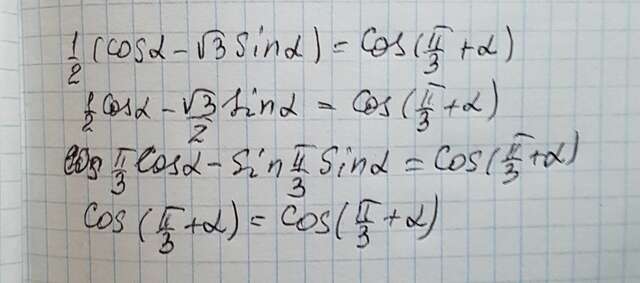 1/2 (cosα − √3 sinα) = cos(π/3 + α)
1/2 cosα − √3/2 sinα = cos(π/3 + α)
cos π/3 cosα − sin π/3 sinα = cos(π/3 + α)
cos(π/3 + α) = cos(π/3 + α)